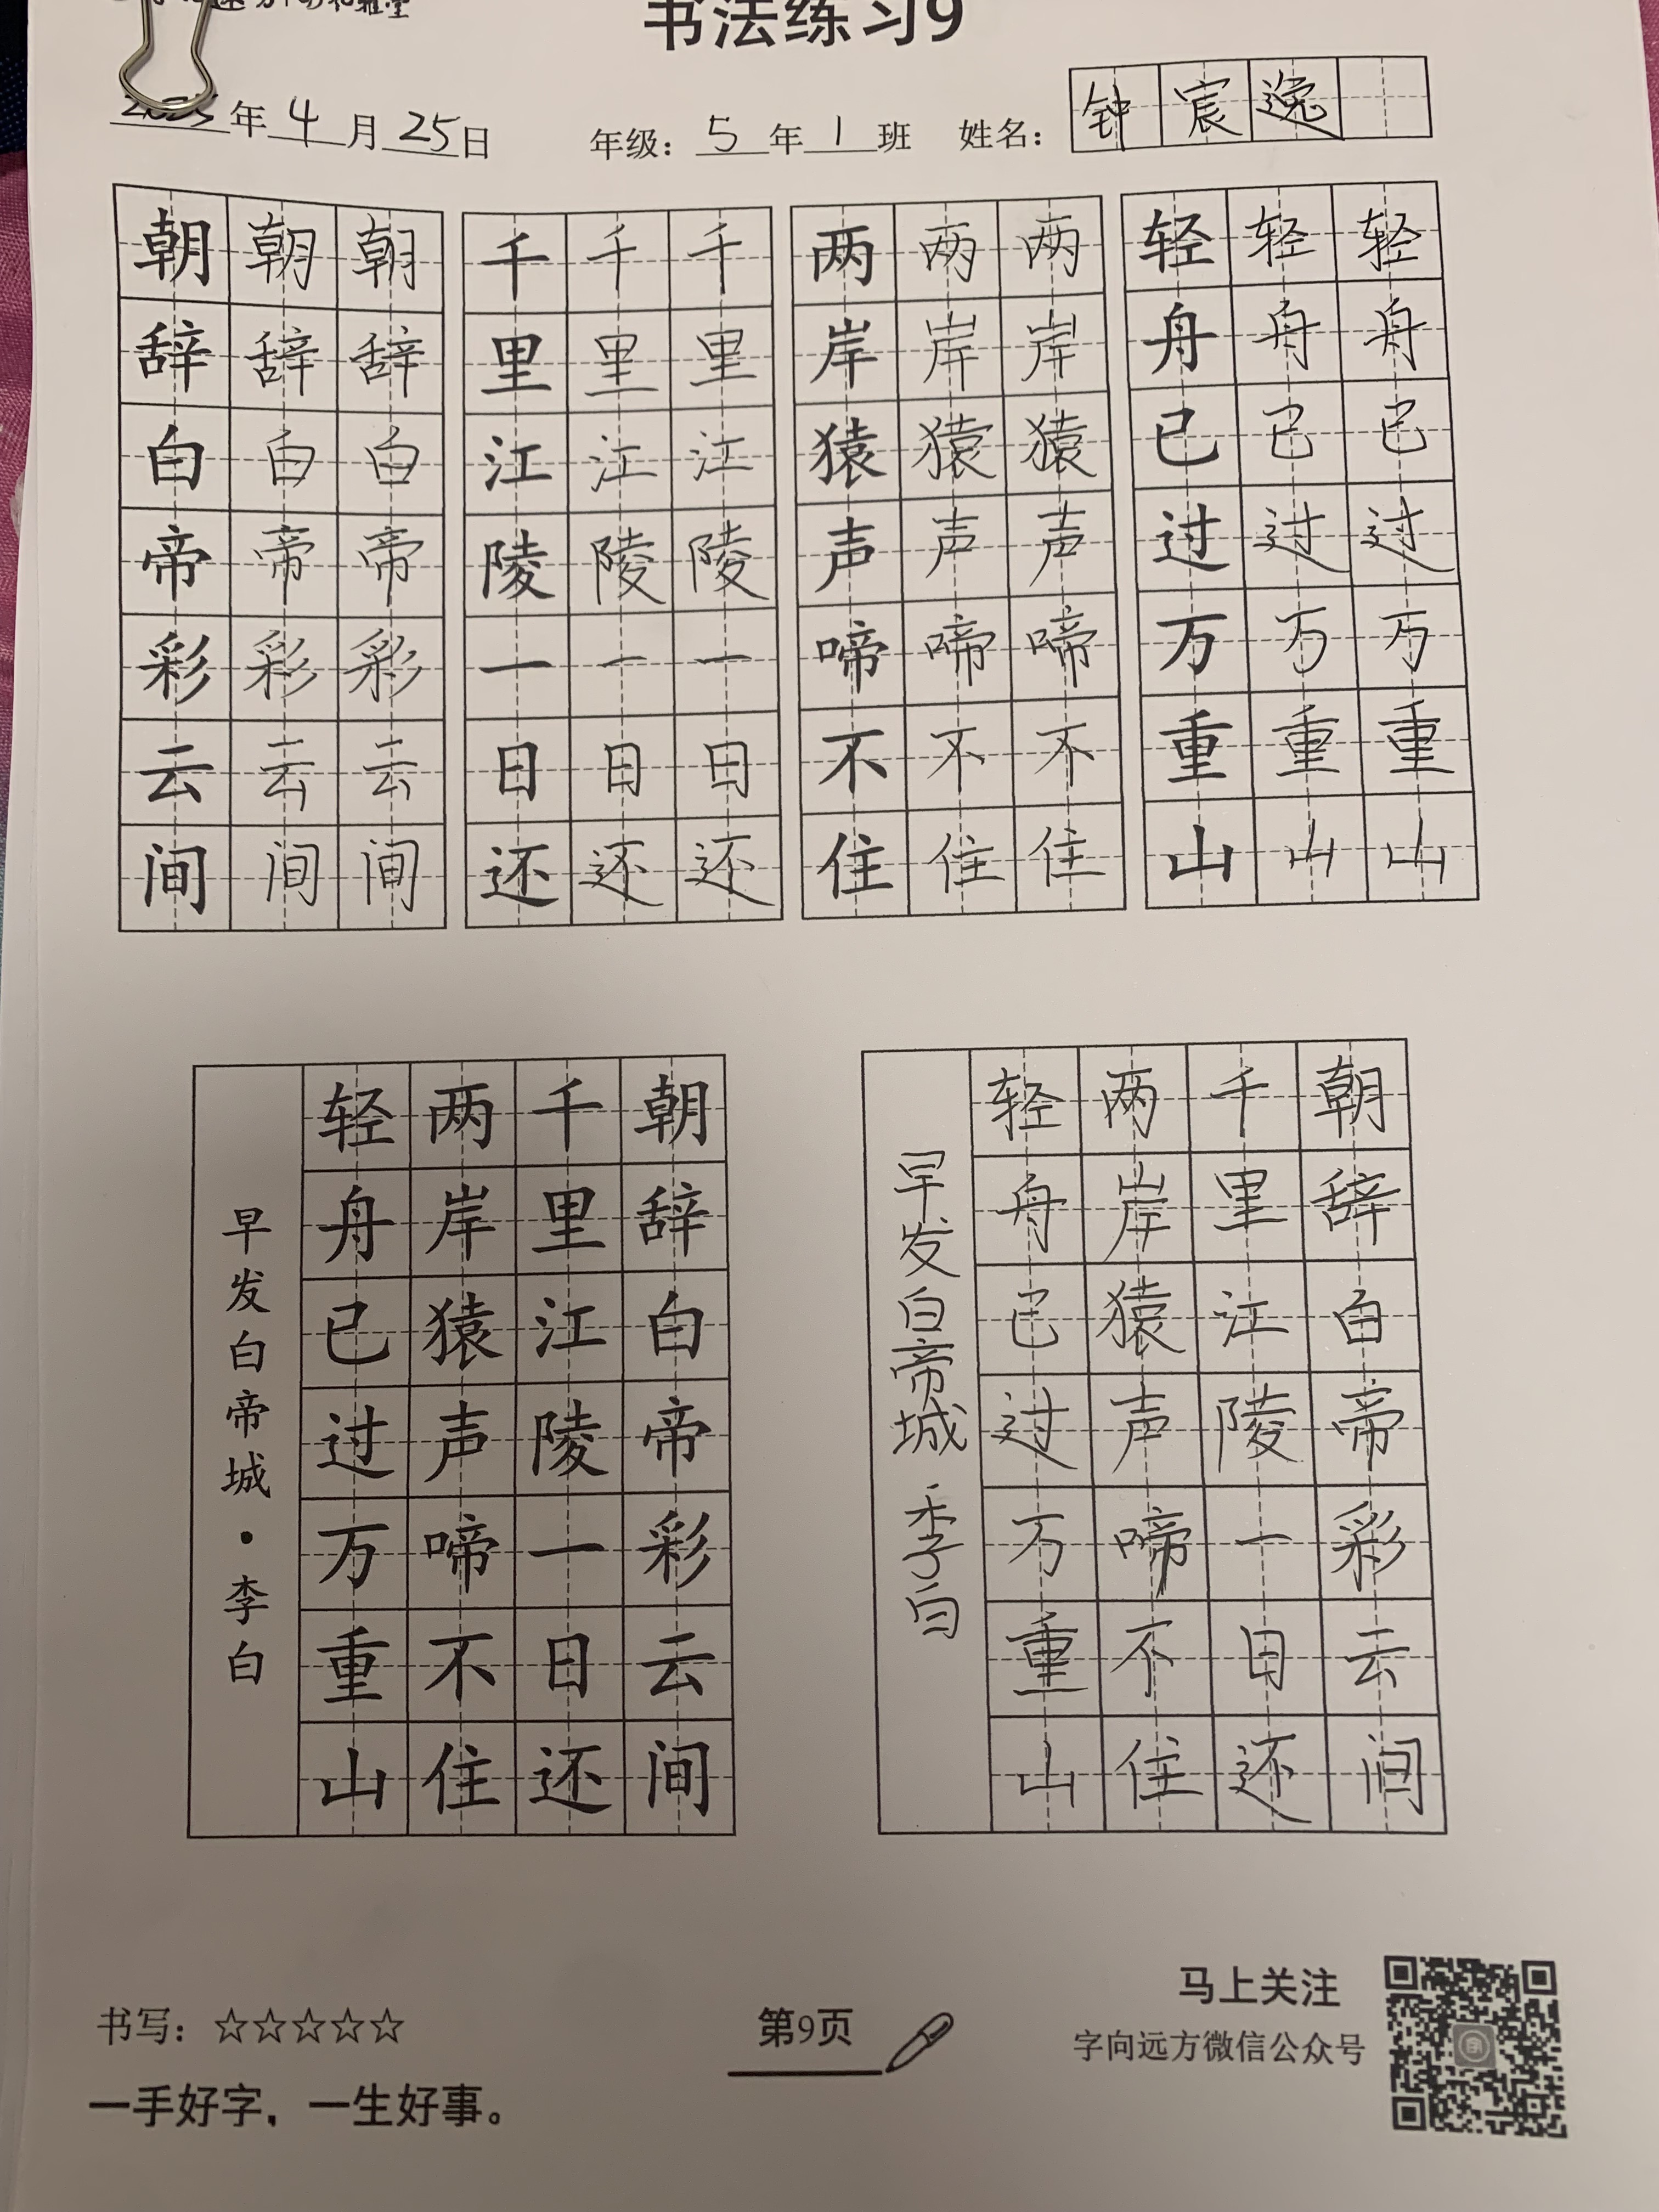 书法练习9
年4月25日 年级：5年1班 姓名：钟宸逸
朝朝朝 千千千 两两两 轻轻轻
辞辞辞 里里里 岸岸岸 舟舟舟
白白白 江江江 猿猿猿 已已已
帝帝帝 陵陵陵 声声声 过过过
彩彩彩 一一一 啼啼啼 万万万
云云云 日日日 不不不 重重重
间间间 还还还 住住住 山山山
朝辞白帝彩云间
千里江陵一日还
两岸猿声啼不住
轻舟已过万重山
早发白帝城·李白
朝辞白帝彩云间
千里江陵一日还
两岸猿声啼不住
轻舟已过万重山
早发白帝城·李白
书写：☆☆☆☆☆
一手好字，一生好事。
第9页
马上关注
字向远方微信公众号